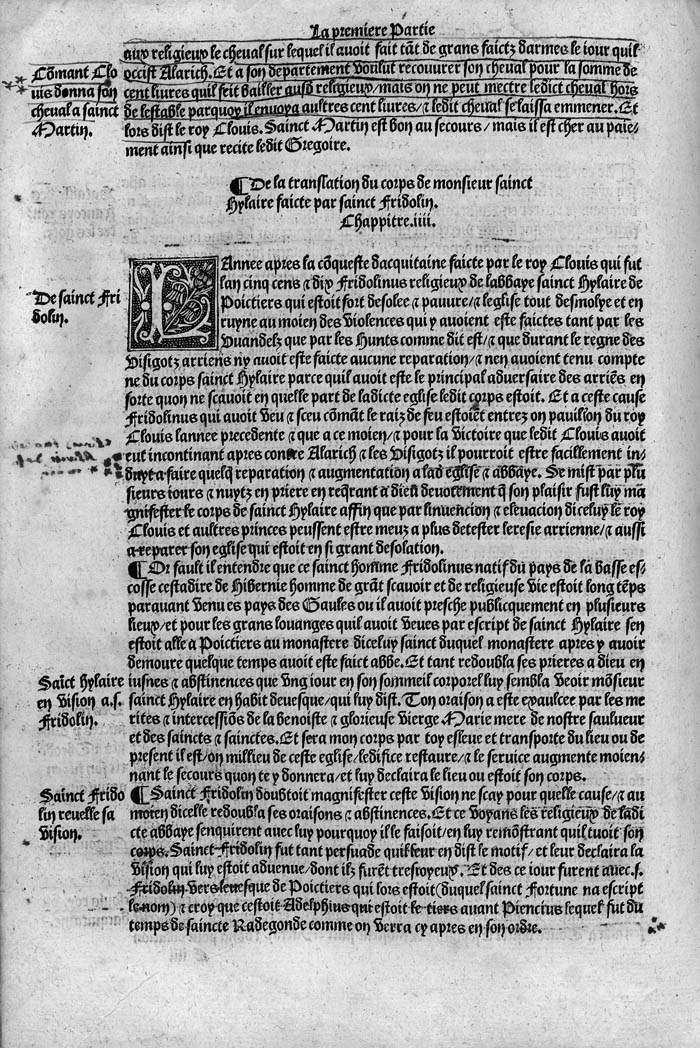 La premiere Partie
aux religieux le cheval sur lequel il avoit fait tãt de grans faictz darmes le iour quil
occist Alarich. Et a son departement voulut recouurer son cheval pour la somme de
cent liures quil feit bailler ausd religieux/ mais on ne peut mectre ledict cheval hors
de lestable parquoy il enuoya aultres cent liures/ ⁊ ledit cheval se laissa emmener. Et
lors dist le roy Clouis. Sainct Martin est bon au secours/ mais il est cher au paie-
ment ainsi que recite ledit Gregoire.
Cõmant Clo
uis donna son
cheval a sainct
Martin.
¶ De la translation du corps de monsieur sainct
Hylaire faicte par sainct Fridolin.
Chappitre.iiii.
De sainct Fri
dolin.
LAnnee apres la cõqueste dacquitaine faicte par le roy Clouis qui fut
lan cinq cens ⁊ dix Fridolinus religieux de labbaye sainct Hylaire de
Poictiers qui estoit fort desolee ⁊ pauure/ ⁊ leglise tout desmolye et en
ruyne au moien des violences qui y auoient este faictes tant par les
Vuandelz que par les Hunts comme dit est/ ⁊ que durant le regne des
Visigotz arriens ny auoit este faicte aucune reparation/ ⁊ nen auoient tenu compte
ne du corps sainct Hylaire parce quil auoit este le principal aduersaire des arriẽs en
sorte quon ne scauoit en quelle part de ladicte eglise ledit corps estoit. Et a ceste cause
Fridolinus qui auoit veu ⁊ sceu cõmãt le raiz de feu estoiẽt entrez on pauillon du roy
Clouis lannee precedente ⁊ que a ce moien/ ⁊ pour la victoire que ledit Clouis auoit
eut incontinant apres contre Alarich ⁊ les Visigotz il pourroit estre facillement in-
duyt a faire quelq reparation ⁊ augmentation a lad eglise ⁊ abbaye. Se mist par plu
sieurs iours ⁊ nuytz en priere en reqrant a dieu deuotement q̃ son plaisir fust luy ma
gnifester le corps de sainct Hylaire affin que par linuencion ⁊ eleuacion diceluy le roy
Clouis et aultres princes peussent estre meuz a plus detester leresie arrienne/ ⁊ aussi
a reparer son eglise qui estoit en si grant desolation.
¶ Or fault il entendre que ce sainct homme Fridolinus natif du pays de la basse es-
cosse cestadire de Hibernie homme de grãt scauoir et de religieuse vie estoit long tẽps
parauant venu es pays des Gaules ou il auoit presche publicquement en plusieurs
lieux/ et pour les grans louanges quil auoit veues par escript de sainct Hylaire sen
estoit alle a Poictiers au monastere diceluy sainct duquel monastere apres y auoir
demoure quelque temps auoit este faict abbe. Et tant redoubla ses prieres a dieu en
iusnes ⁊ abstinences que vng iour en son sommeil corporel luy sembla veoir mõsieur
sainct Hylaire en habit deuesque/ qui luy dist. Ton oraison a este exaulcee par les me
rites ⁊ intercessiõs de la benoiste ⁊ glorieuse vierge Marie mere de nostre saulueur
et des saincts ⁊ sainctes. Et sera mon corps par toy esleue et transporte du lieu ou de
present il est/ on millieu de ceste eglise/ ledifice restaure/ ⁊ le seruice augmente moien-
nant le secours quon te y donnera/ et luy declaira le lieu ou estoit son corps.
Saĩct Hylaire
en vision a.s.
Fridolin.
Sainct Frido
lin reuelle sa
vision.
¶ Sainct Fridolin doubtoit magnifester ceste vision ne scay pour quelle cause/ ⁊ au
moien dicelle redoubla ses oraisons ⁊ abstinences. Et ce voyans les religieux de ladi
cte abbaye senquirent auec luy pourquoy il le faisoit/ en luy remõstrant quil tuoit son
corps. Sainct Fridolin fut tant persuade quil leur en dist le motif/ et leur declaira la
vision qui luy estoit aduenue/ dont ilz furẽt tresioyeux. Et des ce iour furent auec.s.
Fridolin vers leuesque de Poictiers qui lors estoit (duquel sainct Fortune na escript
le nom) ⁊ croy que cestoit Adelphius qui estoit le tiers auant Piencius lequel fut du
temps de saincte Radegonde comme on verra cy apres en son ordre.